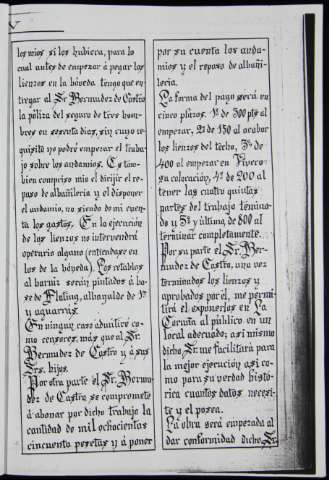 los mios si los hubiera, para lo
cual antes de empezar á pegar los
lienzos en la bóveda tengo que en-
tregar al Sr. Bermudez de Castro
la póliza del seguro de tres hom-
bres en sesenta dias, sin cuyo re-
quisito no podré empezar el traba-
jo sobre los andamios. Es tam-
bien compriso mio el dirijir el re-
paso de albañileria y el disponer
el andamio, no siendo de mi cuen-
ta los gastos. En la ejecución
de los lienzos no intervendrá
operario alguno (entiendase en
los de la bóveda). Los retablos
al barniz serán pintados á ba-
se de Flating, albayalde de 1ª
y aguarrás.
En ningun caso admitiré co-
mo censores, más que al Sr.
Bermudez de Castro y á sus
Srs. hijos.
Por otra parte el Sr. Bermu-
dez de Castro se compromete
á abonar por dicho trabajo la
cantidad de mil ochocientas
cincuenta pesetas y á poner
por su cuenta los anda-
mios y el repaso de albañi-
leria.
La forma del pago será en
cinco plazos. 1º de 300 pts al
empezar, 2º de 150 al acabar
los lienzos del techo, 3º de
400 al empezar en Vivero
colocación, 4º de 200 al
tener las cuatro quintas
partes del trabajo termina-
do y 5º y último, de 800 al
terminar completamente.
Por su parte el Sr. Ber-
mudez de Castro, una vez
terminados los lienzos y
aprobados por él, me permi-
tirá el exponerlos en La
Coruña al público en un
local adecuado; asi mismo
dicho Sr. me facilitará para
la mejor ejecución asi co-
mo para su verdad histó-
rica cuantos datos necesi-
te y el posea.
La obra será empezada al
dar conformidad dicho Sr.